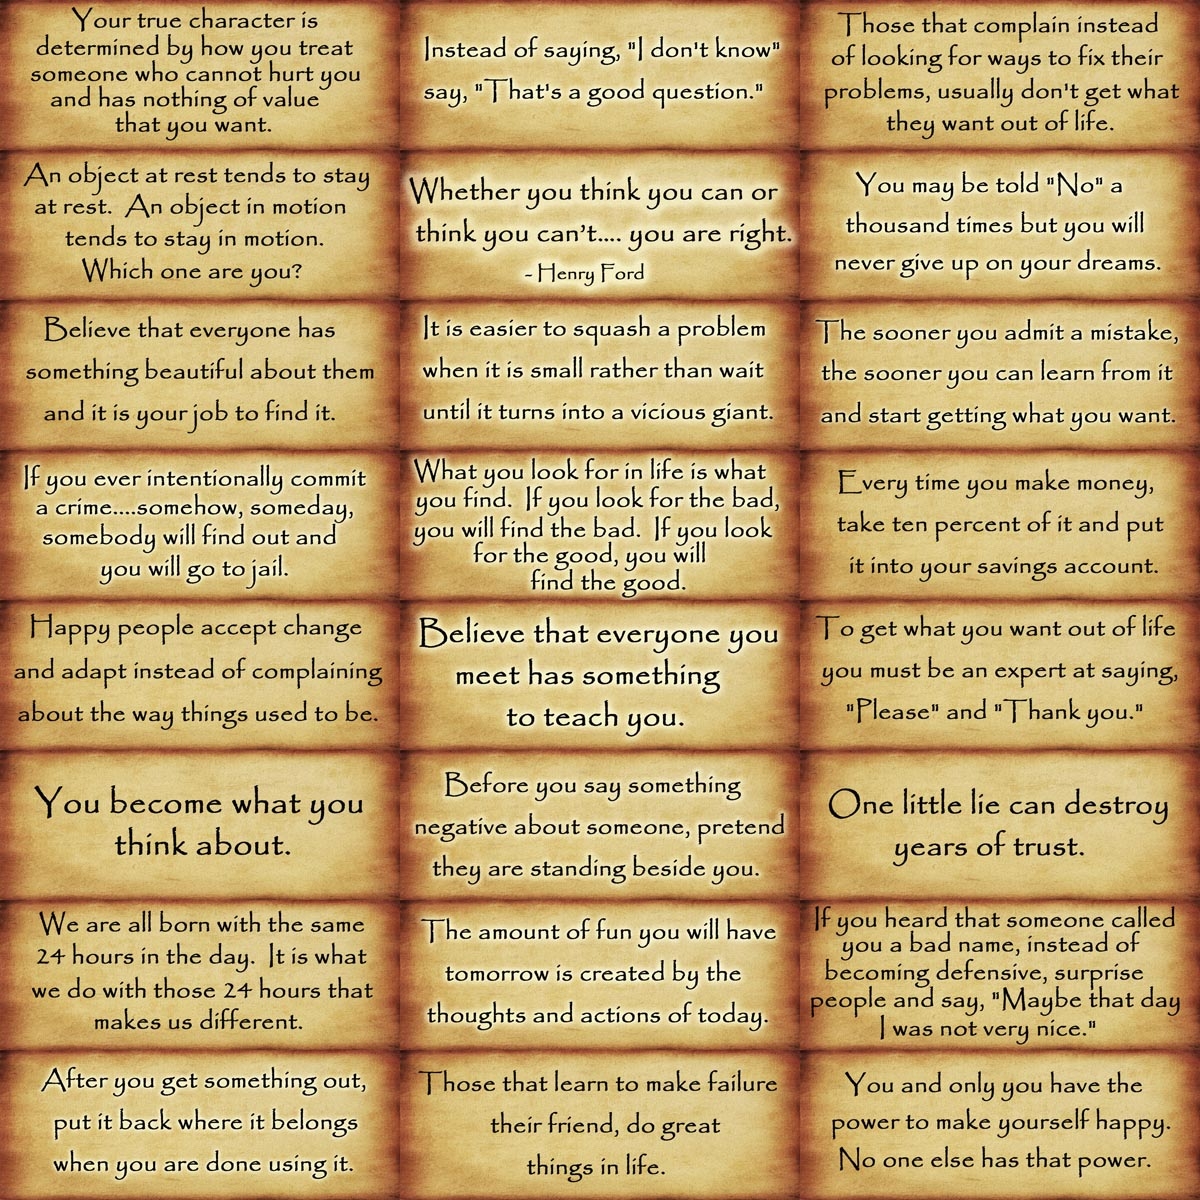 Your true character is
determined by how you treat
someone who cannot hurt you
and has nothing of value
that you want.
Instead of saying, "I don't know"
say, "That's a good question."
Those that complain instead
of looking for ways to fix their
problems, usually don't get what
they want out of life.
An object at rest tends to stay
at rest.  An object in motion
tends to stay in motion.
Which one are you?
Whether you think you can or
think you can't.... you are right.
- Henry Ford
You may be told "No" a
thousand times but you will
never give up on your dreams.
Believe that everyone has
something beautiful about them
and it is your job to find it.
It is easier to squash a problem
when it is small rather than wait
until it turns into a vicious giant.
The sooner you admit a mistake,
the sooner you can learn from it
and start getting what you want.
If you ever intentionally commit
a crime....somehow, someday,
somebody will find out and
you will go to jail.
What you look for in life is what
you find.  If you look for the bad,
you will find the bad.  If you look
for the good, you will
find the good.
Every time you make money,
take ten percent of it and put
it into your savings account.
Happy people accept change
and adapt instead of complaining
about the way things used to be.
Believe that everyone you
meet has something
to teach you.
To get what you want out of life
you must be an expert at saying,
"Please" and "Thank you."
You become what you
think about.
Before you say something
negative about someone, pretend
they are standing beside you.
One little lie can destroy
years of trust.
We are all born with the same
24 hours in the day.  It is what
we do with those 24 hours that
makes us different.
The amount of fun you will have
tomorrow is created by the
thoughts and actions of today.
If you heard that someone called
you a bad name, instead of
becoming defensive, surprise
people and say, "Maybe that day
I was not very nice."
After you get something out,
put it back where it belongs
when you are done using it.
Those that learn to make failure
their friend, do great
things in life.
You and only you have the
power to make yourself happy.
No one else has that power.